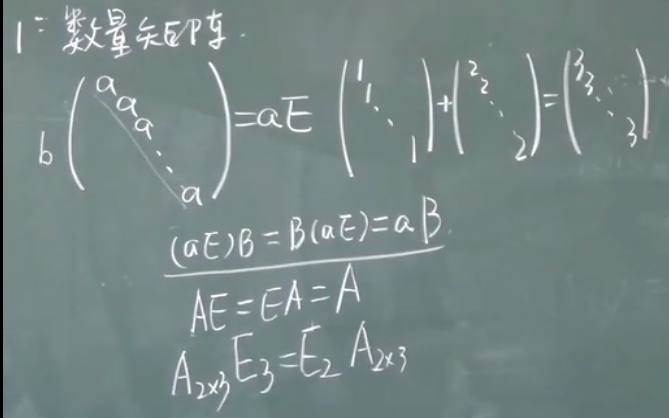 1° 数量矩阵.
b(a a a ⋱ a)=aE (1 1 ⋱ 1)+(2 2 ⋱ 2)=(3 3 ⋱ 3)
(aE)B=B(aE)=aB.
AE=EA=A
A₂ₓ₃E₃=E₂A₂ₓ₃